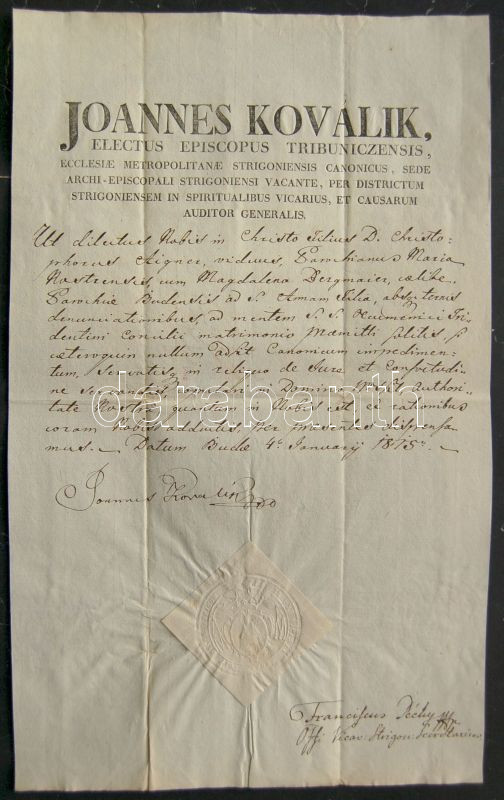 JOANNES KOVÁLIK,
ELECTUS EPISCOPUS TRIBUNICZENSIS,
ECCLESIÆ METROPOLITANÆ STRIGONIENSIS CANONICUS, SEDE
ARCHI-EPISCOPALI STRIGONIENSI VACANTE, PER DISTRICTUM
STRIGONIENSEM IN SPIRITUALIBUS VICARIUS, ET CAUSARUM
AUDITOR GENERALIS.
Ut dilectus Nobis in Christo Filius D. Christo-
phorus Aigner, viduus, Parochianus Maria
Nostrensis, cum Magdalena Bergmaier, cælibe
Parochiæ Budensis ad S. Annam Filia, absq ternis
denunciationibus, ad mentem S. S. Œcumenici Tri-
dentini Concilii matrimonio solitis, si
cæteroquin nullum adsit Canonicum impedimen-
tum, servatisq in reliquo de Jure et Consvetudi-
ne servandis, in Domino Authori-
tate Nostra quantum in Nobis est ex rationibus
coram Nobis adductis, per præsentes dispensa-
mus. Datum Budæ 4a Januarij 1815.
darabanth
Joannes Kovalik
Franciscus Péchy
Offi Vicar: Strigon: Secretarius